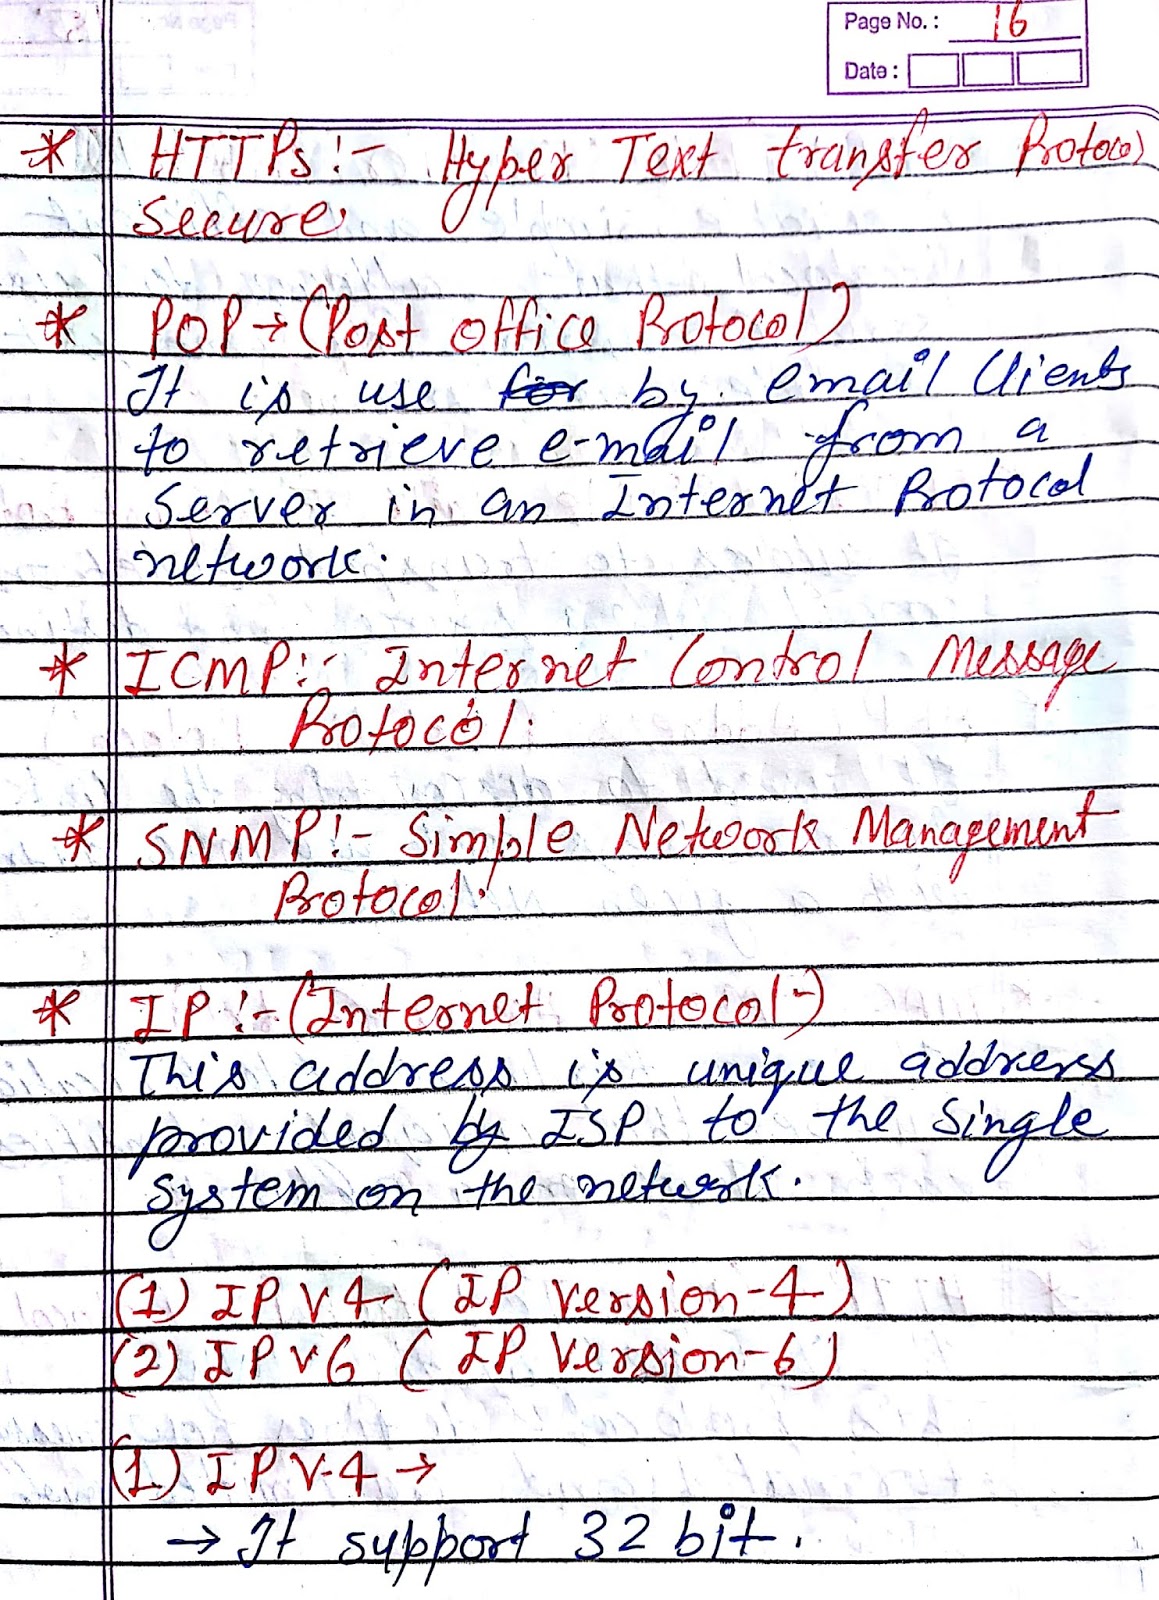 Page No. : 16
Date :
* HTTPs :- Hyper Text transfer Protocol
Secure
* POP → (Post office Protocol)
It is use for by email Clients
to retrieve e-mail from a
Server in an Internet Protocol
network.
* ICMP :- Internet Control Message
Protocol.
* SNMP :- Simple Network Management
Protocol.
* IP :- (Internet Protocol -)
This address is unique address
provided by ISP to the Single
System on the network.
(1) IP V4 (IP Version-4)
(2) IP V6 (IP Version-6)
(1) IP V-4 →
→ It support 32 bit.